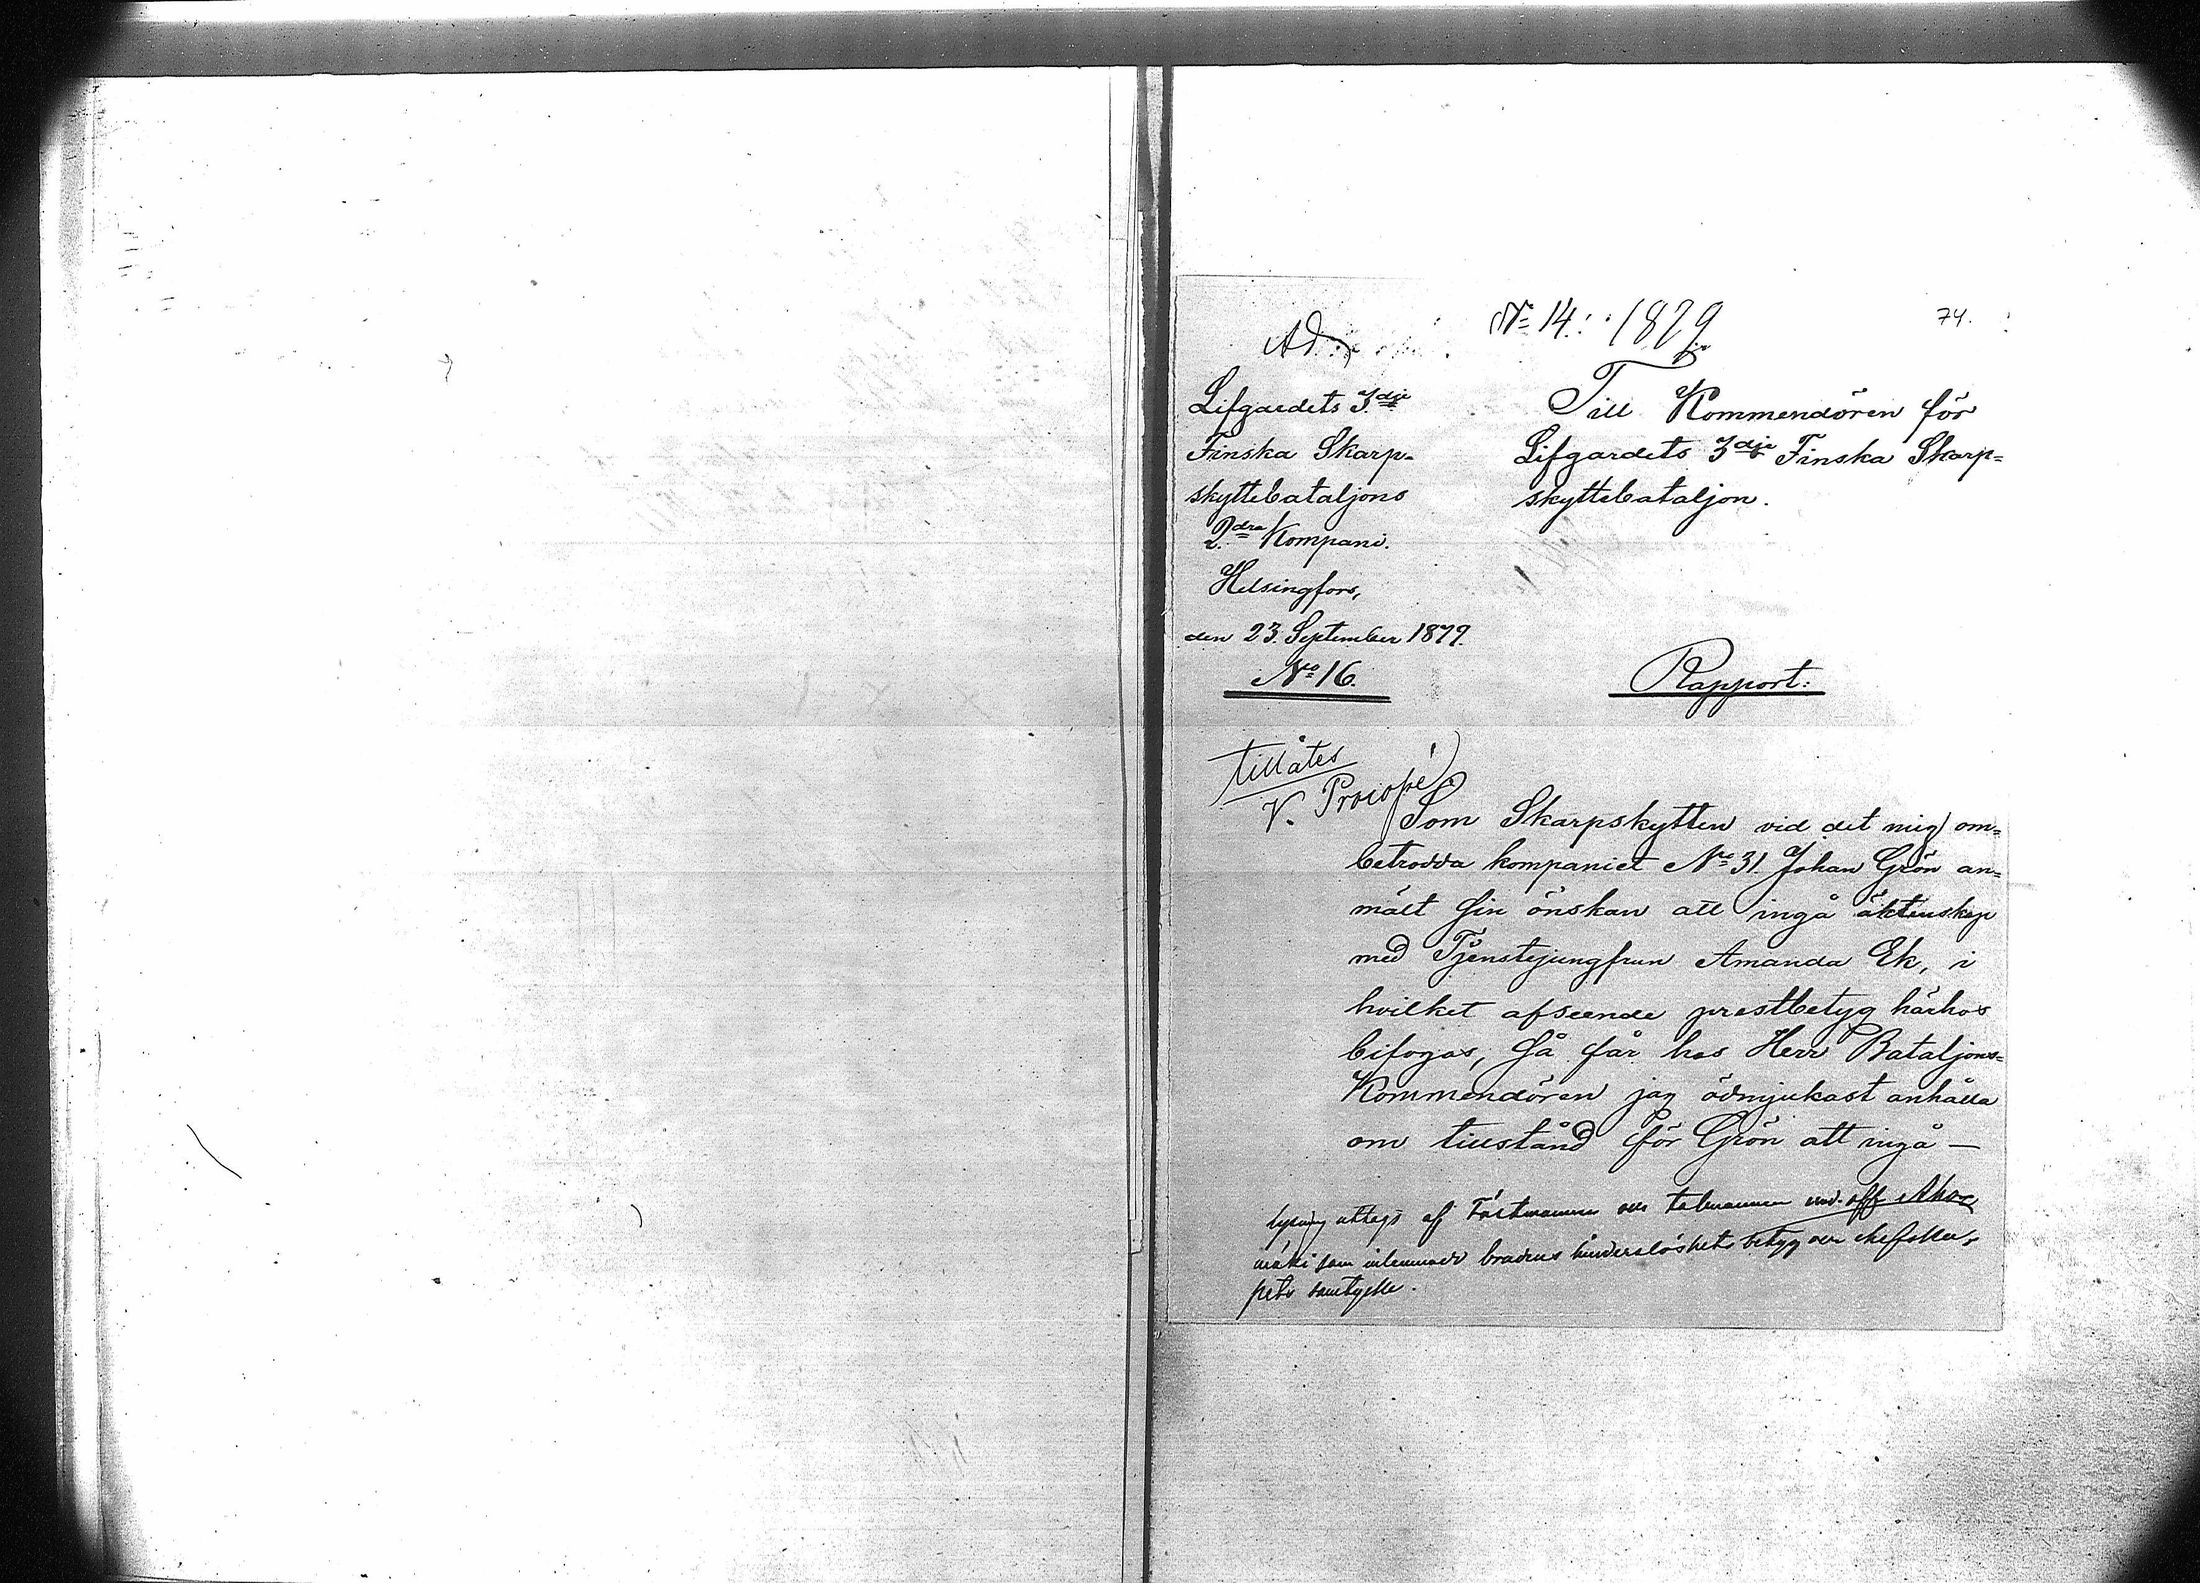 Ad.
No 14. 1879.
74.
Lifgardets 3dje
Finska Skarp-
skyttebataljons
2dra Kompani.
Helsingfors,
den 23. September 1879.
No 16.
Till Kommendören för
Lifgardets 3dje Finska Skarp=
skyttebataljon.
Rapport:
tillåtes
V. Procopé
Som Skarpskytten vid det mig om=
betrodda kompaniet No 31. Johan Grön an=
mält sin önskan att ingå äktenskap
med Tjenstejungfrun Amanda Ek, i
hvilket afseende prestbetyg härhos
bifogas, så får hos Herr Bataljons=
Kommendören jag ödmjukast anhålla
om tillstånd för Grön att ingå —
lysning uttogs af Fästmannen och talmannen und. off.
som inlemnade brudens hinderslöshets betyg och
samtycke.